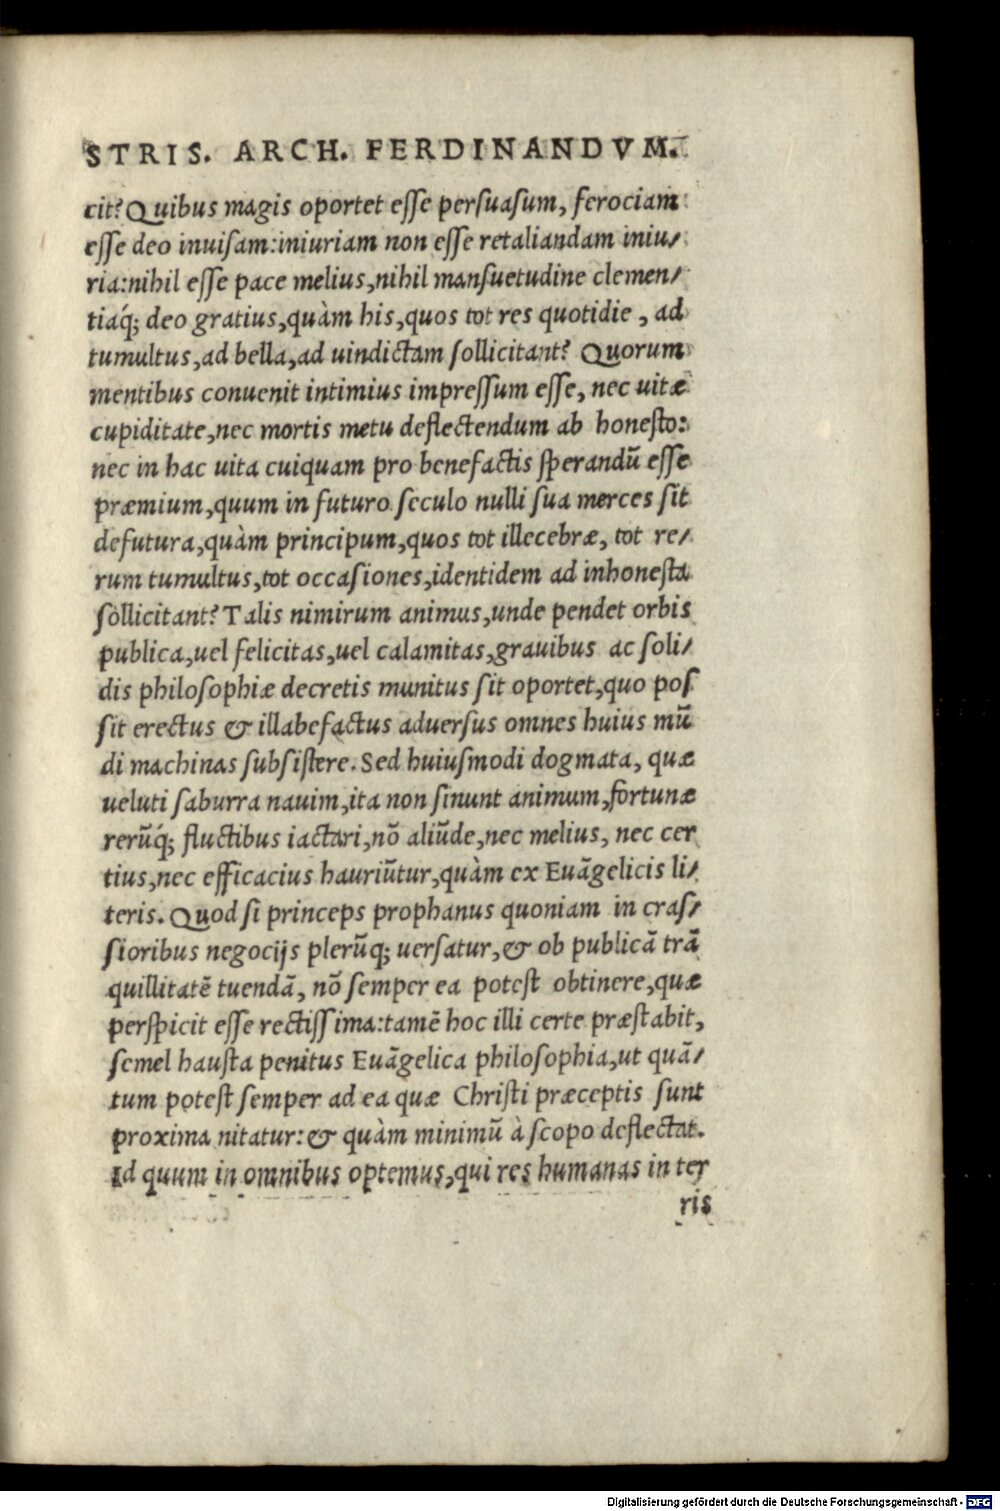 STRIS. ARCH. FERDINANDVM.
cit? Quibus magis oportet eſſe perſuaſum, ferociam
eſſe deo inuiſam:iniuriam non eſſe retaliandam iniu/
ria:nihil eſſe pace melius,nihil manſuetudine clemen/
tiaq́; deo gratius,quàm his,quos tot res quotidie, ad
tumultus,ad bella,ad uindictam ſollicitant? Quorum
mentibus conuenit intimius impreſſum eſſe, nec uitæ
cupiditate,nec mortis metu deflectendum ab honeſto:
nec in hac uita cuiquam pro benefactis ſperandũ eſſe
præmium,quum in futuro ſeculo nulli ſua merces ſit
defutura,quàm principum,quos tot illecebræ, tot re/
rum tumultus,tot occaſiones,identidem ad inhoneſta
ſollicitant? Talis nimirum animus,unde pendet orbis
publica,uel felicitas,uel calamitas,grauibus ac ſoli/
dis philoſophiæ decretis munitus ſit oportet,quo poſ
ſit erectus & illabefactus aduerſus omnes huius mũ
di machinas ſubſiſtere. Sed huiuſmodi dogmata, quæ
ueluti ſaburra nauim,ita non ſinunt animum,fortunæ
rerũq́; fluctibus iactari,nõ aliũde,nec melius, nec cer
tius,nec efficacius hauriũtur,quàm ex Euãgelicis li/
teris. Quod ſi princeps prophanus quoniam in craſ/
ſioribus negocijs plerũq; uerſatur,& ob publicã trã
quillitatẽ tuendã, nõ ſemper ea poteſt obtinere,quæ
perſpicit eſſe rectiſſima:tamẽ hoc illi certe præſtabit,
ſemel hauſta penitus Euãgelica philoſophia,ut quã/
tum poteſt ſemper ad ea quæ Chriſti præceptis ſunt
proxima nitatur:& quàm minimũ à ſcopo deflectat.
Id quum in omnibus optemus,qui res humanas in ter
ris
Digitalisierung gefördert durch die Deutsche Forschungsgemeinschaft - DFG